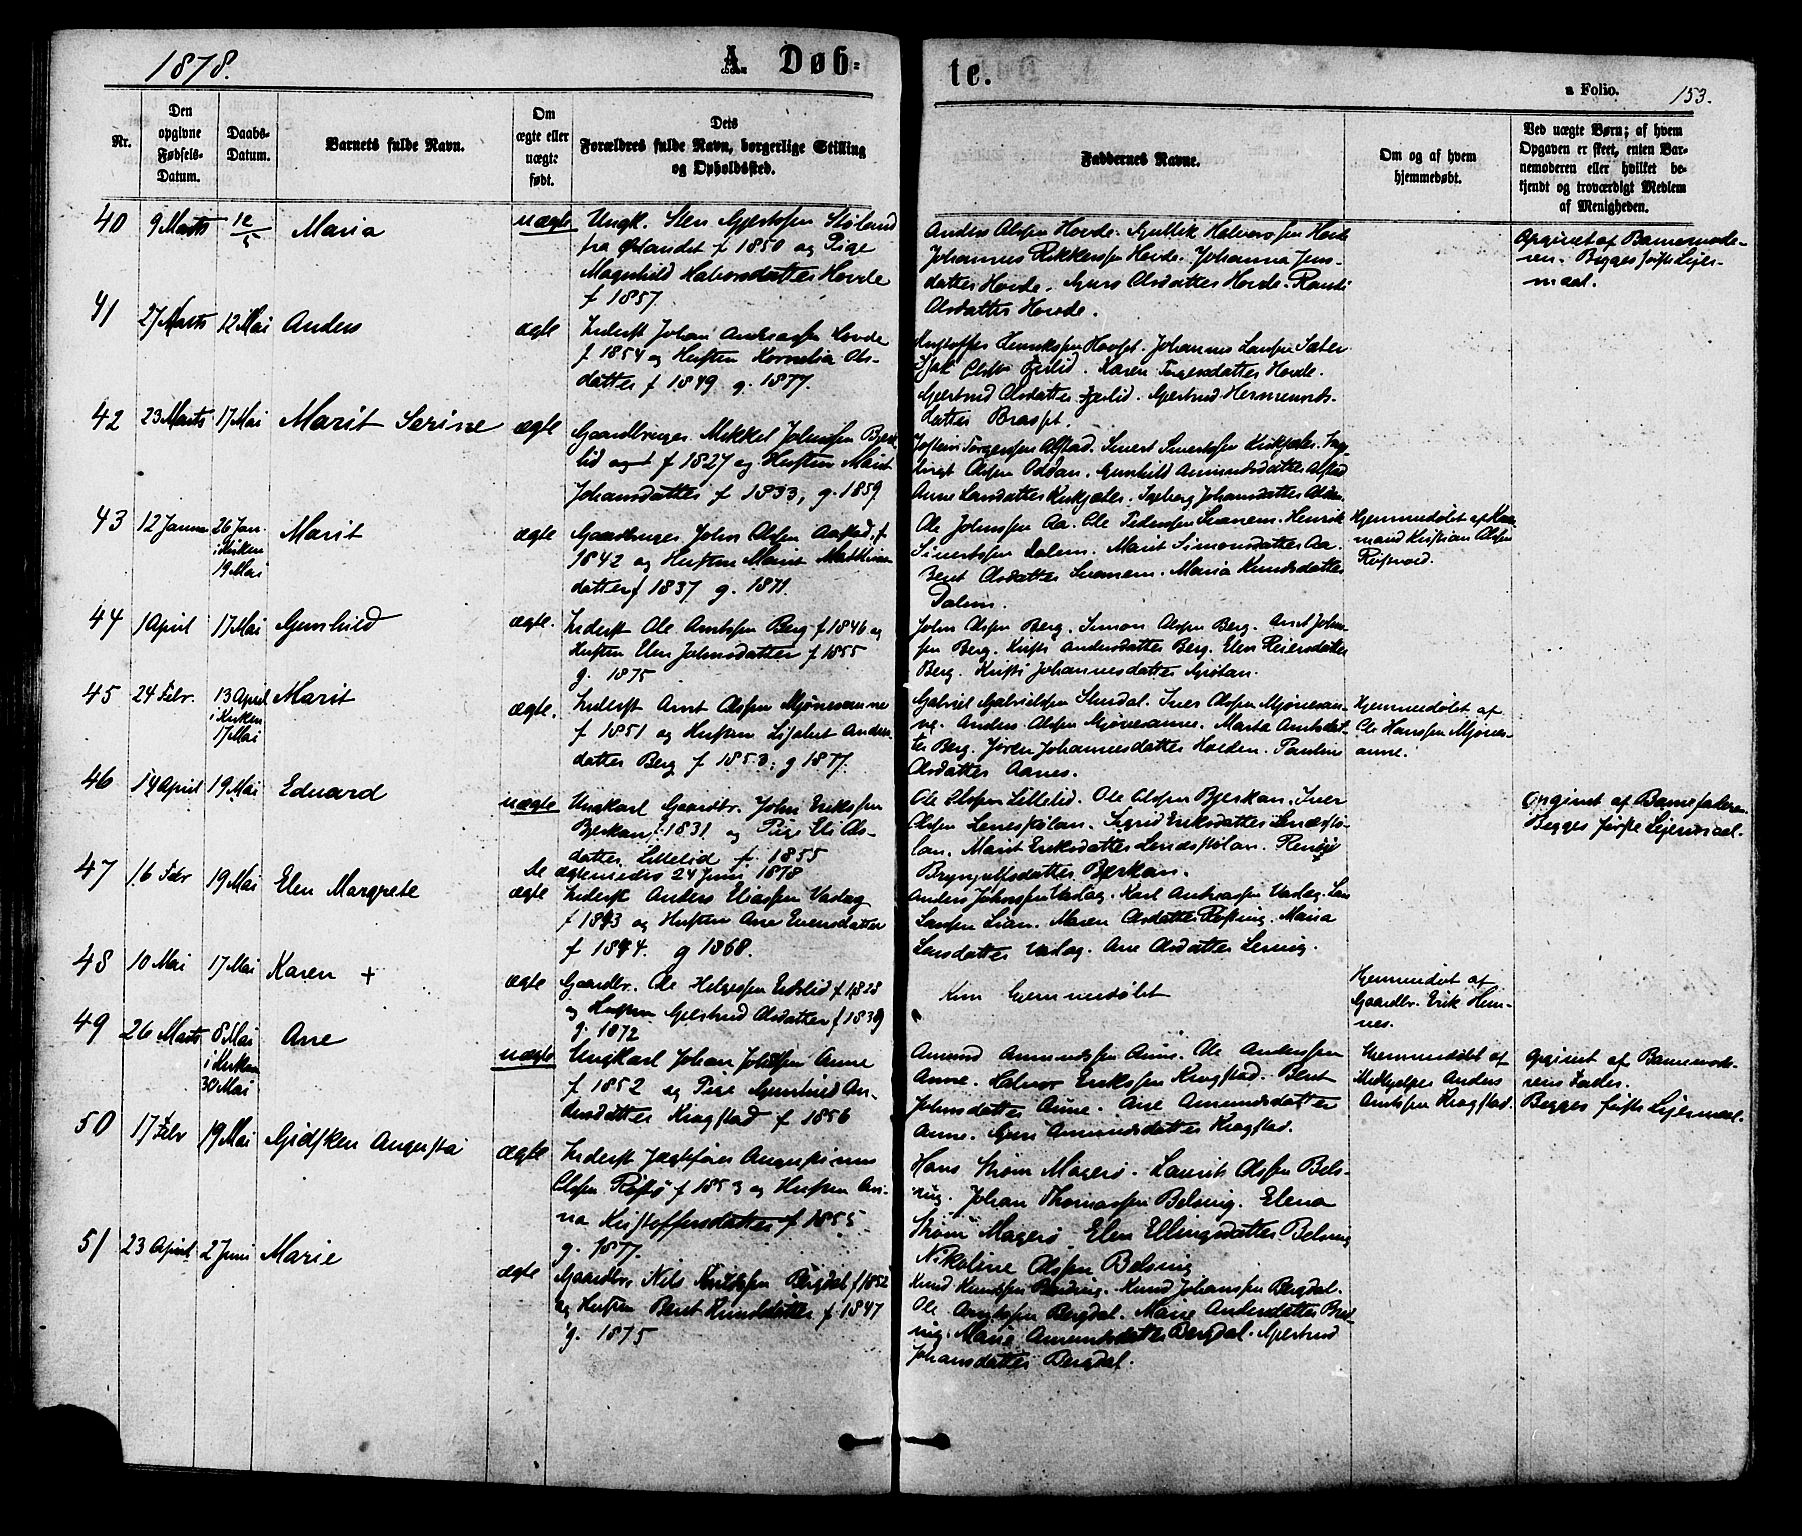 1878.
A. Døb-
te.
a Folio. 153.
Nr.
Den opgivne Fødsels-Datum.
Daabs-Datum.
Barnets fulde Navn.
Om ægte eller uægte født.
Dets Forældres fulde Navn, borgerlige Stilling og Opholdssted.
Faddernes Navne.
Om og af hvem hjemmedøbt.
Ved uægte Børn; af hvem Opgaven er skeet, enten Barnemoderen eller hvilket bekjendt og troværdigt Medlem af Menigheden.
40 9 Marts 12/5 Maria uægte
Ungk. Sten Gjertsen Støland
fra Ørlandet f 1850 og Pige
Magnhild Halvorsdatter Hovde
f 1857.
Anders Olsen Hovde. Gullik Halvorssen Hovde
Johannes Rikkerssen Hovde. Johanna Jens-
datter Hovde. Guro Olsdatter Hovde. Randi
Olsdatter Hovde.
Opgivet af Barnemode-
ren. Begges første Leier-
maal.
41 27 Marts 12 Mai Anders ægte
Inderst Johan Andreassen Hovde
f 1854 og Hustru Kornelia Ols-
datter f 1849 g. 1877.
Kristoffer Henrikssen Hovde. Johannes Larssen Sæter
Karen Hovde.
Gjertrud Olsdatter
datter
42 23 Marts 17 Mai Marit Serine ægte
Gaardbruger Mikkel Johnssen Bjørk-
lid f 1827 og Hustru Marit
Johansdatter f 1833, g. 1859
Jostein Torgerssen Alstad. Sivert Sivertssen Kirksæter. Ing-
brigt Olssen Oddan. Gunhild Amundsdatter Alstad
Anne Larsdatter Kirksæter. Ingeborg Johansdatter
43 12 Januar 26 Jan. i Kirken 19 Mai Marit ægte
Gaardbruger John Olssen Aastad f
1842 og Hustru Marit
datter f 1837 g. 1871.
Ole Johnssen Aa. Ole Pedersen Svanem. Henrik
Sivertssen Dalem. Marit Simonsdatter Aa.
Berit Olsdatter Svanem. Maria Knudsdatter
Dalem.
Hjemmedøbt af
Kristian Olssen
44 1 April 17 Mai Gunhild ægte.
Inderst Ole Arntssen Berg f 1846 og
Hustru Elen Johnsdatter f 1855
g. 1875
John Olssen Berg. Simon Olssen Berg. Arnt John-
sen Berg. Kirsti Andersdatter Berg. Elen Reiersdatter
Berg. Kirsti Johannesdatter
45 24 Febr. 13 April i Kirken 17 Mai Marit ægte.
Inderst Arnt Olssen Mjønesaunne
f 1851 og Hustru Lisabet Anders-
datter Berg f 1853; g 1877.
Gabriel Gabrielssen Stendal. Iver Olssen Mjønesaun-
ne. Anders Olssen Mjønesaunne. Marta Arntsdat-
ter Berg. Jøren Johannesdatter Holden. Pauline
Olsdatter Aanes.
Hjemmedøbt af
Ole Hanssen Mjønes-
aunne.
46 14 April 19 Mai Edvard uægte
Ungkarl Gaardbr. John Erikssen
Bjerkan f. 1831 og Pige Els Ols-
datter Lillelid f. 1855
De ægteviedes 24 Juni 1878
Ole Olssen Lillelid. Ole Olssen Bjerkan. Iver
Olssen Lenesstølan. Sigrid Eriksdatter Lenesstø-
lan. Marit Eriksdatter Lenesstølan.
Brynjulfsdatter Bjerkan.
Opgivet af Barnefaderen
Begges første Leiermaal.
47 16 Febr 19 Mai Elen Margrete ægte
Inderst Anders Eliassen Vaslag
f 1843 og Hustru Ane Evensdatter
f 1844. g 1868.
Anders Johnssen Vaslag. Karl Andreassen Vaslag. Lars
Larssen Lian. Maren Olsdatter Røstring. Maria
Larsdatter Vaslag. Ane Olsdatter Lesning.
48 10 Mai 17 Mai Karen + ægte
Gaardbr. Ole Helgessen Eidslid f 1828
og Hustru Gjertrud Olsdatter f 1839
g. 1872
Kun hjemmedøbt
Hjemmedøbt af
Gaardbr. Erik Hem-
nes.
49 26 Marts 8 Mai i Kirken 30 Mai Ane uægte
Ungkarl Johan Johssen Aune
f 1852 og Pige Gunhild An-
dersdatter Krogstad f 1856
Amund Amundssen Aune. Ole Anderssen
Aune. Halvor Erikssen Krogstad. Berit
Johnsdatter Aune. Ane Amundsdatter
Aune. Guri Amundsdatter Krogstad.
Hjemmedøbt af
Medhjelper Anders
Arntssen Krogstad.
Opgivet af Barnemode-
rens Fader.
Begges første Leiermaal.
50 17 Febr 19 Mai Gidsken Augusta ægte
Inderst Jægtfører Augustinus
Olssen Røstø f 1853 og Hustru An-
na Kristoffersdatter f 1855
g. 1877.
Hans Strøm Magerø. Laurits Olssen Bels-
ring. Johan Thomassen Belsring. Elena
Strøm Magerø. Elen Ellingsdatter Belsring
Nikoline Olssen Belsring
51 23 April 2 Juni Marie ægte
Gaardbr. Nils Bergdal f 1852
og Hustru Berit Knudsdatter f 1847
g. 1875
Knud Knudssen Knud Johanssen Bergdal.
Ole Arntssen Bergdal. Marie Andersdatter
Marie Amundsdatter Bergdal. Gjertrud
Johansdatter Bergdal.